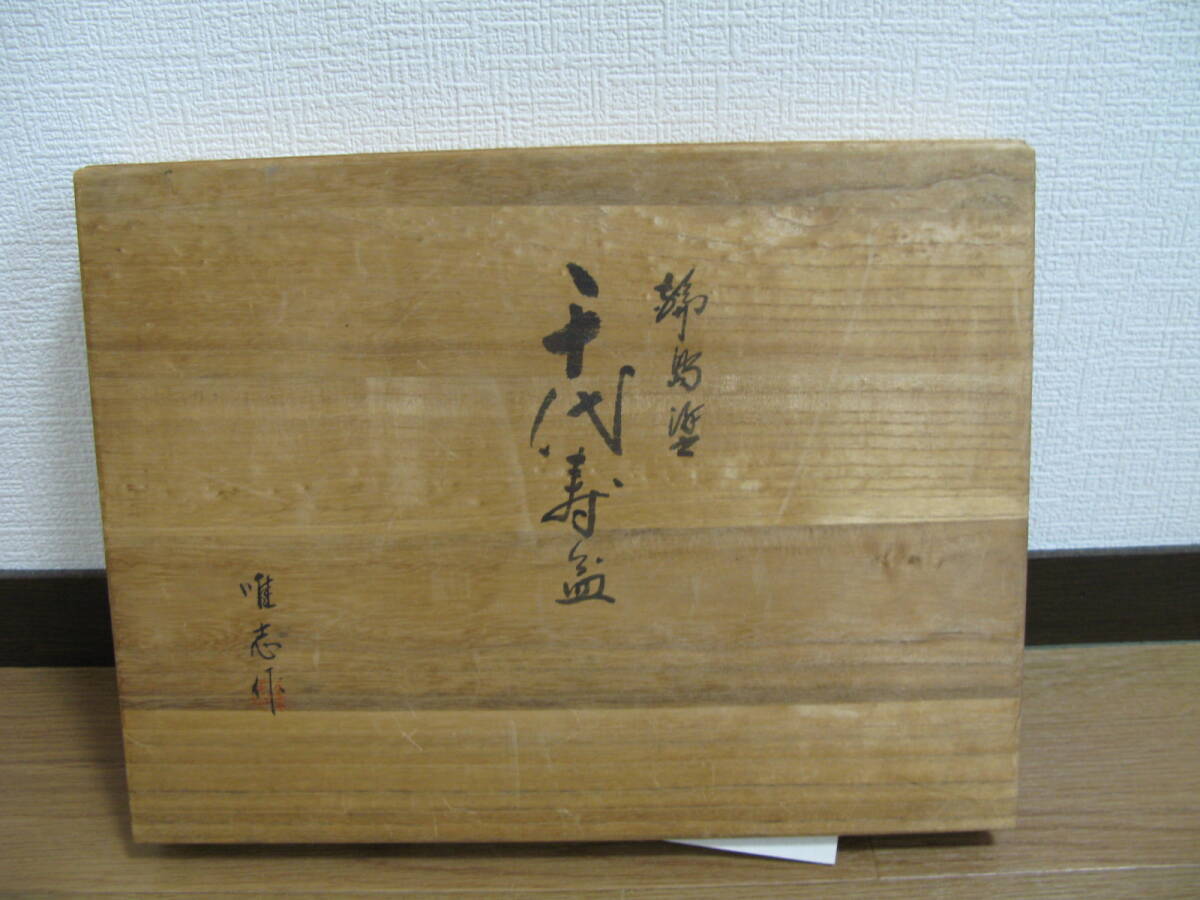 輪島塗
千代寿盆
唯志作